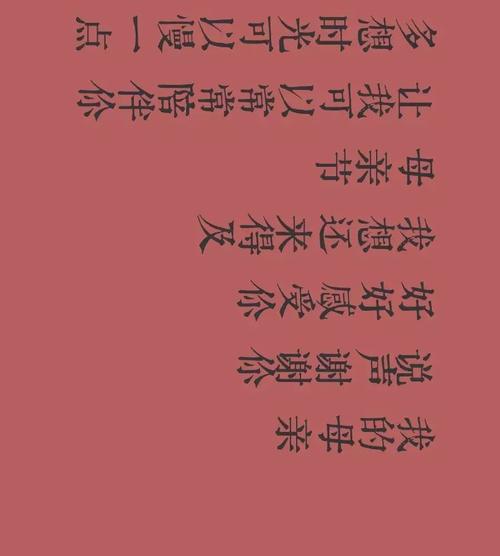 多想时光可以慢一点
让我可以常常陪伴你
母亲节
我想还来得及
好好感受你
说声谢谢你
我的母亲